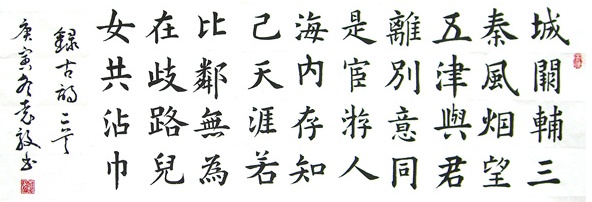 城闕輔三
秦風烟望
五津與君
離別意同
是宦游人
海内存知
己天涯若
比鄰無為
在歧路兒
女共沾巾
錄古詩
庚寅冬